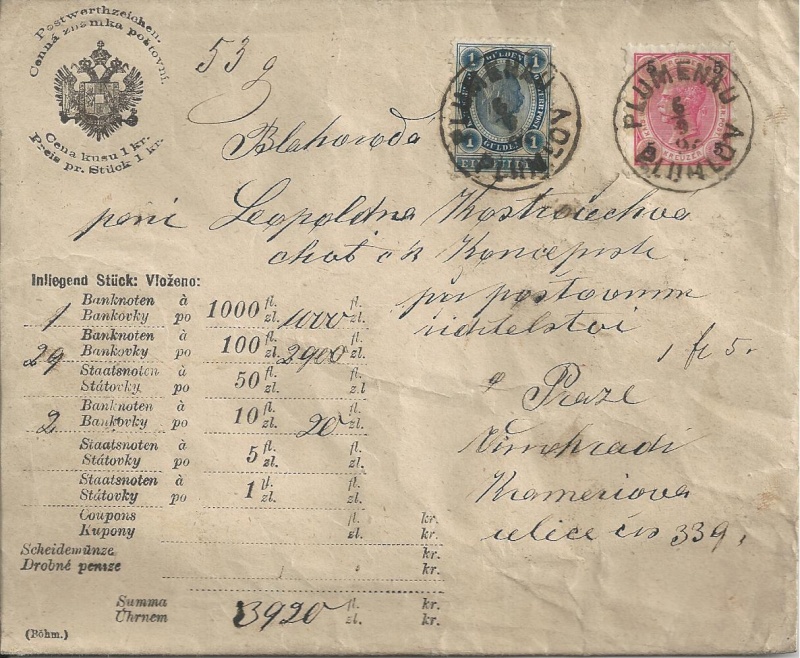 Postwerthzeichen.
Cenná známka poštovní.
Cena kusu 1 kr.
Preis pr. Stück 1 kr.
53 g
1 GULDEN 1
1 GULDEN 1
PLUMENAU
PLUMLOV
5 5
5 KREUZER 5
PLUMENAU
6
PLUMLOV
Blahorodá
paní Leopoldna
choť ck
při poštovním
ředitelství
1 fl 5
v Praze
Vinohradí
Krameriova
ulice čís 339.
Inliegend Stück: Vloženo:
1 Banknoten à Bankovky po 1000 fl. zl. 1000 fl. zl.
29 Banknoten à Bankovky po 100 fl. zl. 2900 fl. zl.
Staatsnoten à Státovky po 50 fl. zl. fl. z.l
2 Banknoten à Bankovky po 10 fl. zl. 20 fl. zl.
Staatsnoten à Státovky po 5 fl. zl. fl. zl.
Staatsnoten à Státovky po 1 fl. zl. fl. zl.
Coupons fl. kr.
Kupony zl. kr.
Scheidemünze kr.
Drobné peníze kr.
Summa fl. kr.
Úhrnem 3920 zl. kr.
(Böhm.)